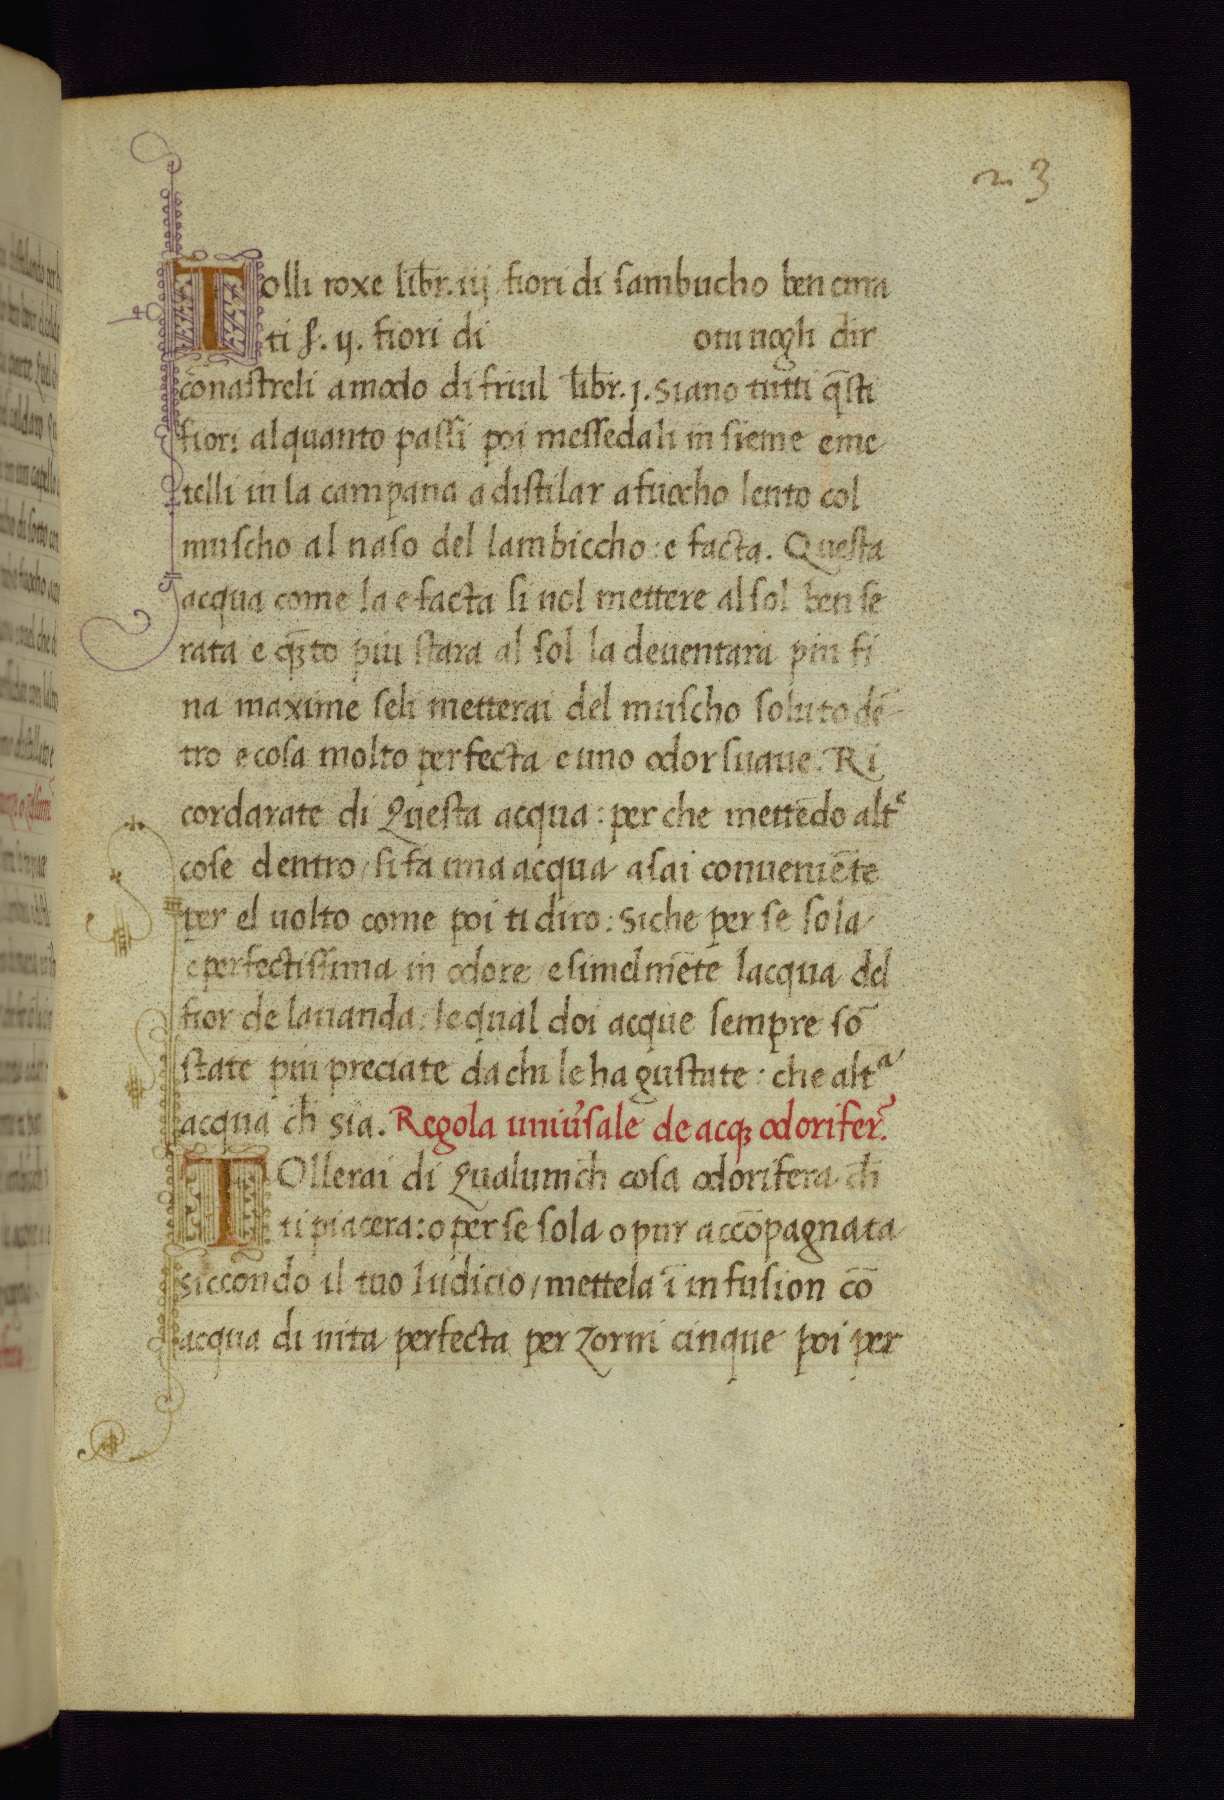 23
Tolli roxe libr. iij fiori di sambucho ben cura
ti s. ij. fiori di otu uogli dir
cōnastreli a modo di friul libr. j. siano tutti q̄sti
fiori alquanto passi poi messedali in sieme e me
telli in la campana a distilar a fuocho lento col
muscho al naso del lambiccho : e facta. Questa
acqua come la e facta si uol mettere al sol ben se
rata e q̄to piu stara al sol la deuentara piu fi
na maxime seli metterai del muscho soluto dē
tro e cosa molto perfecta e uno odor suaue. Ri
cordarate di Questa acqua : per che mettēdo altᵉ
cose dentro / si fa una acqua asai conueniēte
per el uolto come poi ti diro : siche per se sola
e perfectissima in odore e simelmēte lacqua del
fior de lauanda : le qual doi acque sempre sō
state piu preciate da chi le ha gustate : che altᵃ
acqua ch̄ sia. Regola uniu̓sale de acq̄ odorifer̄.
TOllerai di Qualumch̄ cosa odorifera ch̄
ti piacera : o per se sola o pur accōpagnata
siccondo il tuo Iudicio / mettela ī infusion cō
acqua di uita perfecta per zorni cinque poi per